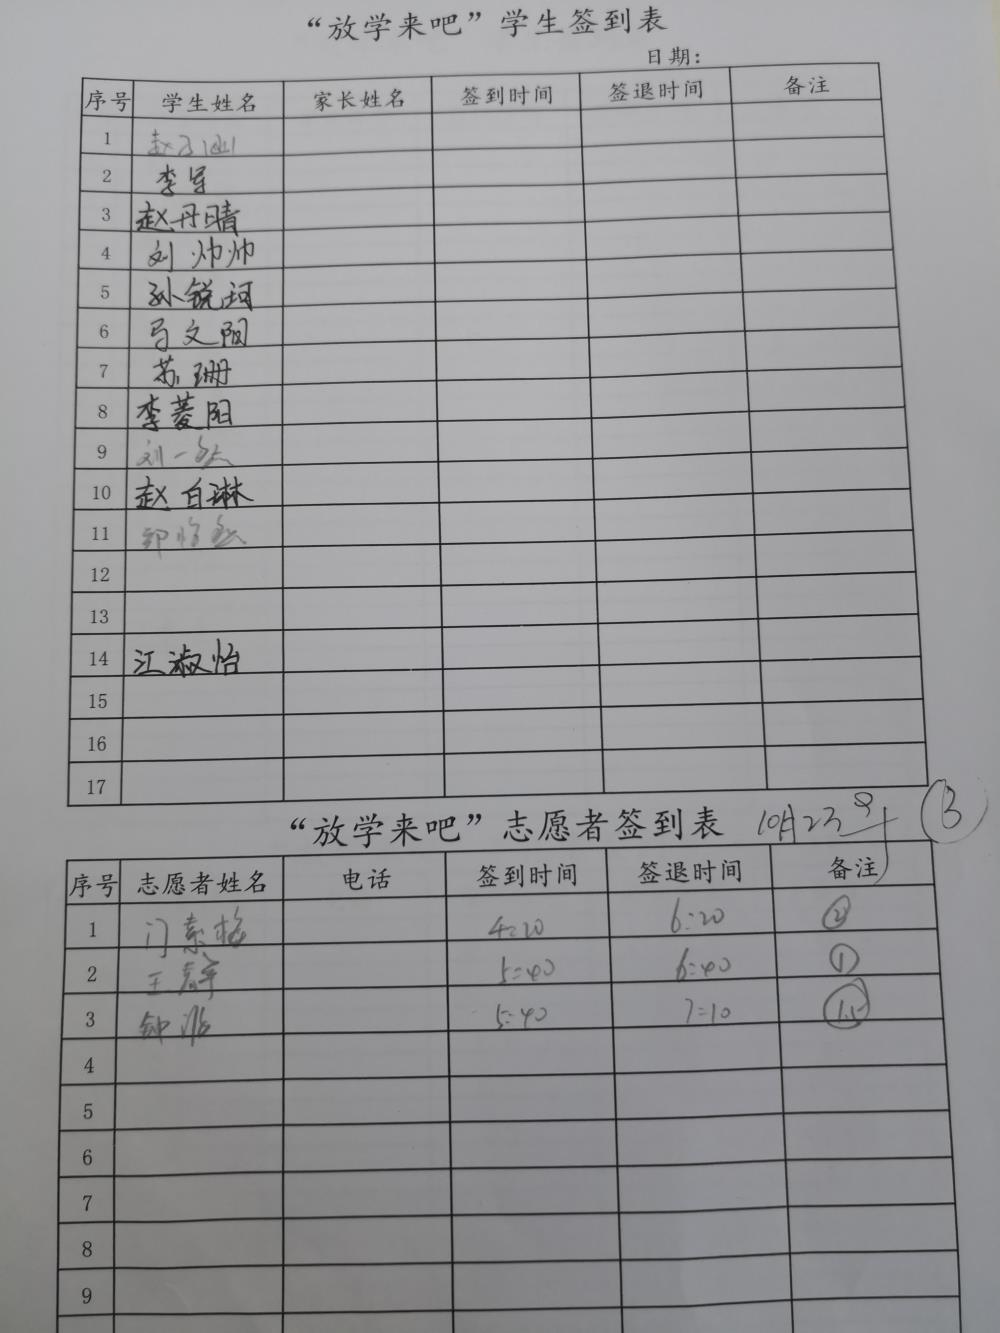 “放学来吧”学生签到表
日期:
序号 学生姓名 家长姓名 签到时间 签退时间 备注
1
2 李军
3 赵丹晴
4 刘帅帅
5 孙锐珂
6 马文阳
7 苏珊
8 李菱阳
9 刘一
10 赵白琳
11 郭怡
12
13
14 江淑怡
15
16
17
“放学来吧”志愿者签到表 10月23号 3
序号 志愿者姓名 电话 签到时间 签退时间 备注
1 门素梅 4:20 6:20 2
2 王 5:40 6:40 1
3 钟 5:40 7:10 1.5
4
5
6
7
8
9